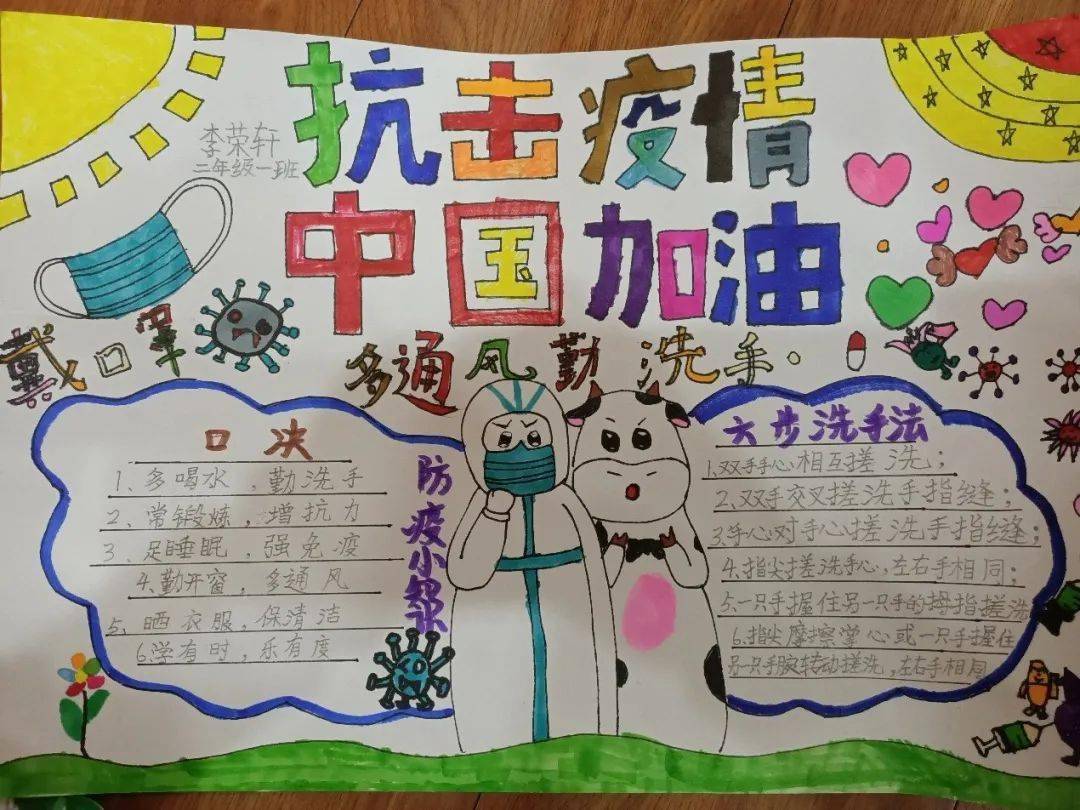 抗击疫情
李荣轩
二年级一班
中国加油
戴口罩
多通风勤洗手
口决
1、多喝水,勤洗手
2、常锻炼,增抗力
3、足睡眠,强免疫
4.勤开窗,多通风
5、晒衣服,保清洁
6.学有时,乐有度
防疫小知识
六步洗手法
1.双手手心相互搓洗;
2.双手交叉搓洗手指缝;
3.手心对手心搓洗手指缝;
4.指尖搓洗手心,左右手相同;
5.一只手握住另一只手的拇指搓洗
6.指尖摩擦掌心或一只手握住
另一只手腕转动搓洗,左右手相同